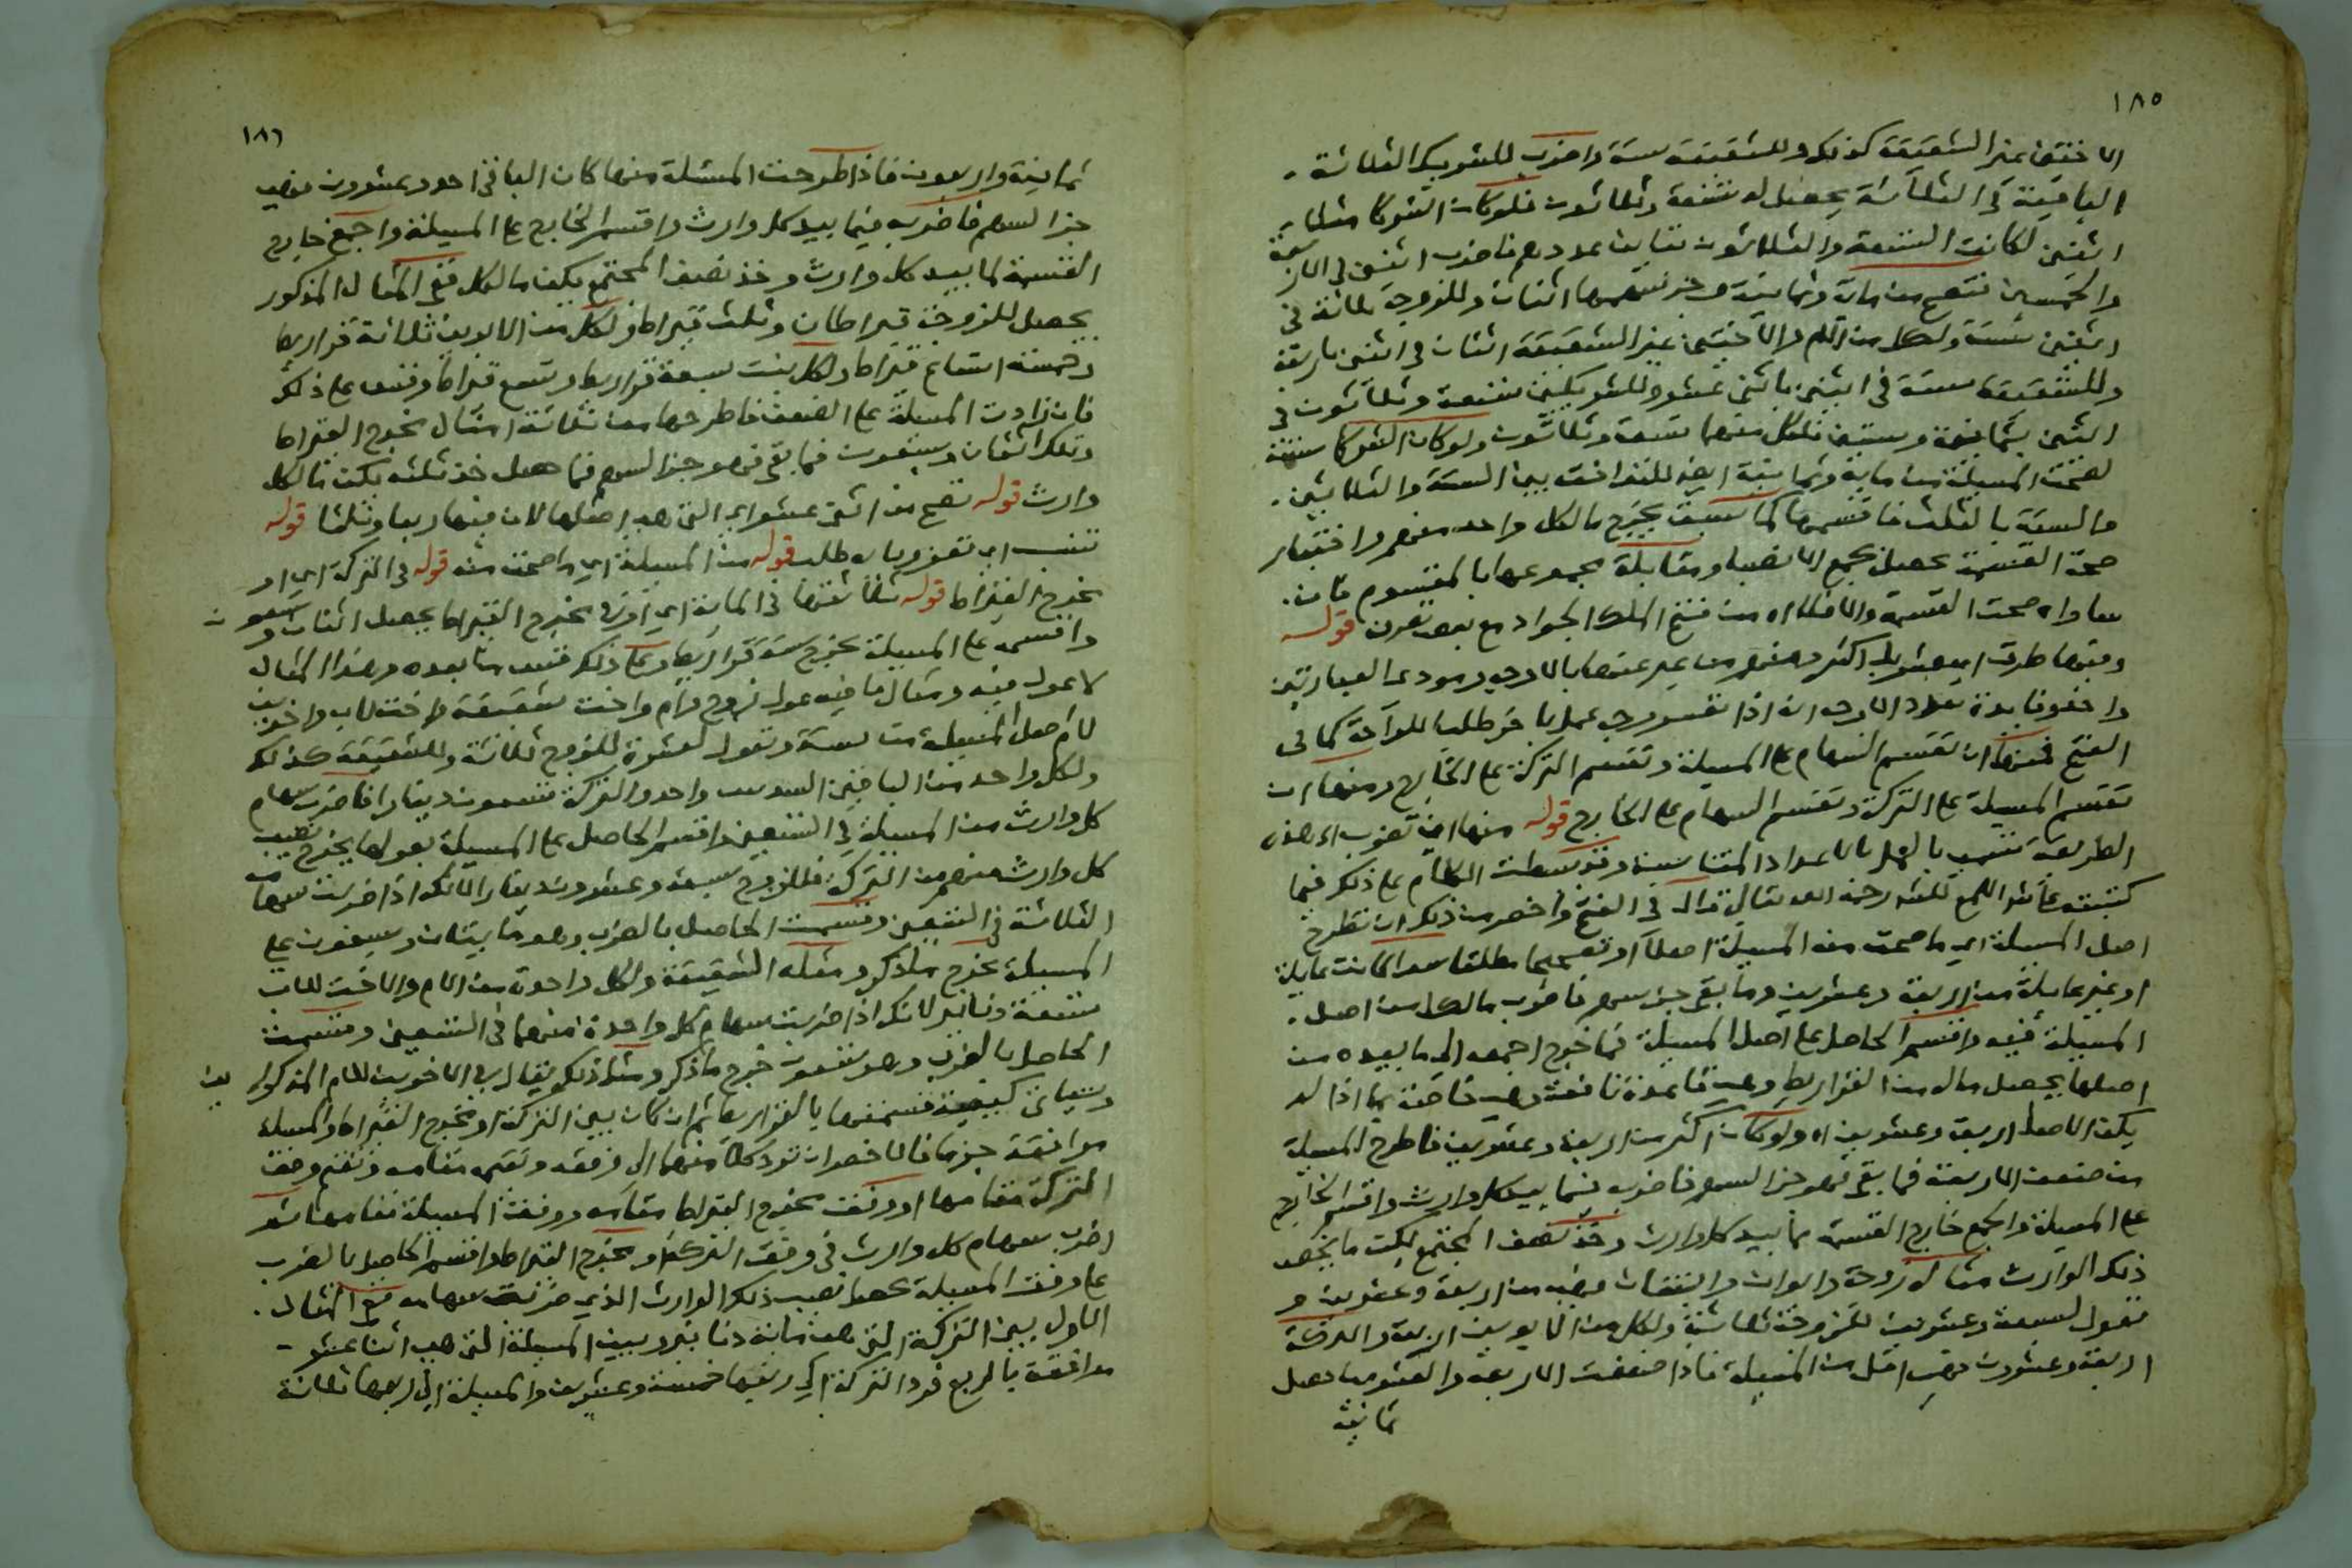 ١٨٥
الاختين غير الشقيقة كذلك وللشقيقة ستة واضرب للشريك الثلاثة
الباقية في الثلاثة يحصل له تسعة وثلاثون فلو كان الشركا مثلا
اثنين لكانت التسعة والثلاثون تباين عددهم فاضرب اثنين في الاربعة
والخمسين تصح من ماية وثمانية وجز سهمها اثنان وللزوجة ثلاثة في
اثنين ستة ولكل من الام والاختين غير الشقيقة اثنان في اثنين باربعة
وللشقيقة ستة في اثنين باثني عشر وللشريكين تسعة وثلاثون في
اثنين بثمانية وسبعين فلكل منهما تسعة وثلاثون ولو كان الشركا ستة
لصحت المسيلة من ماية وثمانية ايضا للتوافق بين الستة والثلاثين
والستة بالثلث فاقسمها كما سبق يخرج ما لكل واحد منهم واختبار
صحة القسمة يحصل بجمع الانصبا ومقابلة مجموعها بالمقسوم فان
ساواه صحت القسمة والا فلا اه من فتح الملك الجواد مع بعض تصرف قوله
ومنها طرق اي عشر بل اكثر ومنهم من عبر عنها بالاوجه ومودى العبارتين
واحد وفايدة تعداد الاوجه انه اذا تعسر وجه عمل باخر طلبا للراحة كما في
الفتح فمنها ان تقسم السهام على المسيلة وتقسم التركة على الخارج ومنها ان
تقسم المسيلة على التركة وتقسم السهام على الخارج قوله منها ان تضرب اه هذه
الطريقة تسمى بالعمل بالاعداد المتناسبة وقد بسطت الكلام على ذلك فيما
كتبته على شرح اللمع للشيخ رحمه الله تعالى قال في الفتح واخصر من ذلك ان تطرح
اصل المسيلة اي ما صحت منه المسيلة اصلا او تصحيحا مطلقا سواء كانت عايلة
او غير عايلة من اربعة وعشرين وما بقي جزء سهم فاضرب ما لكل من اصل
المسيلة فيه واقسم الحاصل على اصل المسيلة فما خرج اجمعه الى ما بيده من
اصلها يحصل ماله من القراريط وهي قاعدة نافعة وهي خاصة بما اذا لم
يكن الاصل اربعة وعشرين اه ولو كان اكثر من اربعة وعشرين فاطرح المسيلة
من ضعف الاربعة فما بقي فهو جز السهم فاضربه فيما بيد كل وارث واقسم الخارج
على المسيلة واجمع خارج القسمة بما بيد كل وارث وخذ نصف المجتمع يكن ما يخص
ذلك الوارث مثاله زوجة وابوان وابنتان فهي من اربعة وعشرين و
تعول لسبعة وعشرين للزوجة ثلاثة ولكل من الابوين اربعة والتركة
اربعة وعشرون فهي اقل من المسيلة فاذا ضعفت الاربعة والعشرين حصل
ثمانية
١٨٦
ثمانية واربعون فاذا طرحت المسئلة منها كان الباقي احد وعشرون فهي
جز السهم فاضربه فيما بيد كل وارث واقسم الخارج على المسيلة واجمع خارج
القسمة لما بيد كل وارث وخذ نصف المجتمع يكن ما لكل ففي المثال المذكور
يحصل للزوجة قيراطان وثلث قيراط ولكل من الابوين ثلاثة قراريط
وخمسة اتساع قيراط ولكل بنت سبعة قراريط وتسع قيراط وقس على ذلك
فان زادت المسيلة على الضعف فاطرحها من ثلاثة امثال مخرج القيراط
وتلك اثنان وسبعون فما بقي فهو جز السهم فما حصل خذ ثلثه يكن ما لكل
وارث قوله تصح من اثنى عشر اي التي هي اصلها لان فيها ربعا وثلثا قوله
تنسب اي تعزو يا طالب قوله من المسيلة اي ما صحت منه قوله في التركة اي او
مخرج القيراط قوله ثلاثتها في الماية اي او في مخرج القيراط يحصل اثنان وسبعون
واقسمه على المسيلة يخرج ستة قراريط وعلى ذلك فقس ما بعده وهذا المثال
لا عول فيه ومثال ما فيه عول زوج وام واخت شقيقة واخت لاب واخوين
لام اصل المسيلة من ستة وتعول لعشرة للزوج ثلاثة وللشقيقة كذلك
ولكل واحد من الباقين السدس واحد والتركة تسعون دينارا فاضرب سهام
كل وارث من المسيلة في التسعين واقسم الحاصل على المسيلة بعولها يخرج نصيب
كل وارث منهم من التركة فللزوج سبعة وعشرون دينارا لانك اذا ضربت سهامه
الثلاثة في التسعين وقسمت الحاصل بالضرب وهو مايتان وسبعون على
المسيلة يخرج ما ذكر ومثله الشقيقة ولكل واحدة من الام والاخت للاب
تسعة دنانير لانك اذا ضربت سهام كل واحدة منهما في التسعين وقسمت
الحاصل بالضرب وهو تسعون خرج ما ذكر ومثل ذلك يقال في الاخوين للام المذكورين
وسياتي كيفية قسمتها بالقراريط ثم ان كان بين التركة او مخرج القيراط والمسيلة
موافقة جزما فالاخصر ان ترد كلا منهما الى وفقه وتقيمه مقامه وتقيم وفق
التركة مقامها او وفق مخرج القيراط مقامه ووفق المسيلة مقامها ثم
اضرب سهام كل وارث في وفق التركة او مخرج القيراط واقسم الحاصل بالضرب
على وفق المسيلة يحصل نصيب ذلك الوارث الذي ضربت سهامه ففي المثال
الاول بين التركة التي هي ماية دنانير وبين المسيلة التي هي اثنا عشر
موافقة بالربع فرد التركة الى ربعها خمسة وعشرين والمسيلة الى ربعها ثلاثة